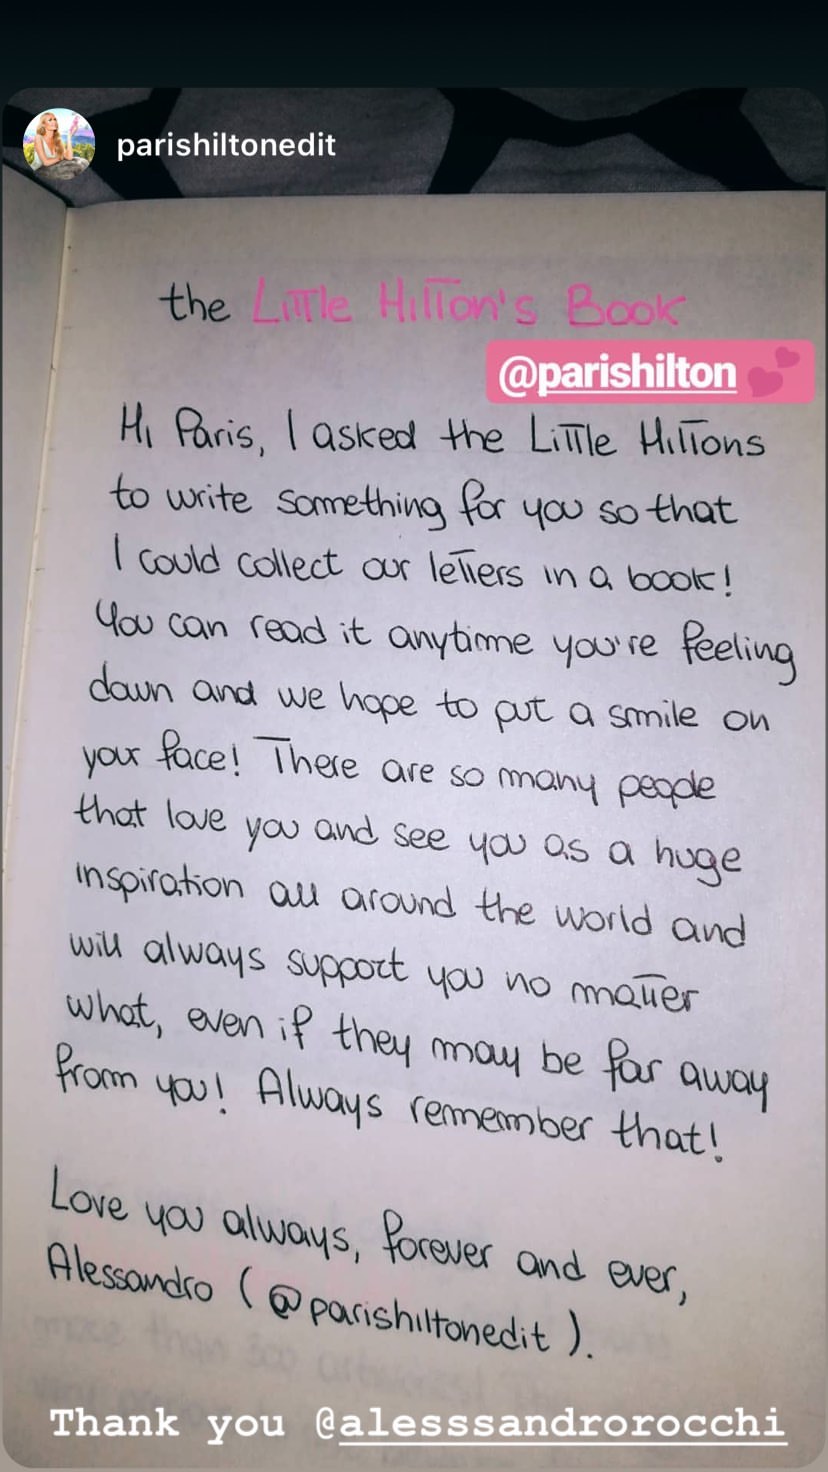 parishiltonedit
the Little Hilton's Book
@parishilton
Hi Paris, I asked the Little Hiltons
to write something for you so that
I could collect our letters in a book!
You can read it anytime you're feeling
down and we hope to put a smile on
your face! There are so many people
that love you and see you as a huge
inspiration all around the world and
will always support you no matter
what, even if they may be far away
from you! Always remember that!
Love you always, forever and ever,
Alessandro (@parishiltonedit).
more than 300
Thank you @alesssandrorocchi